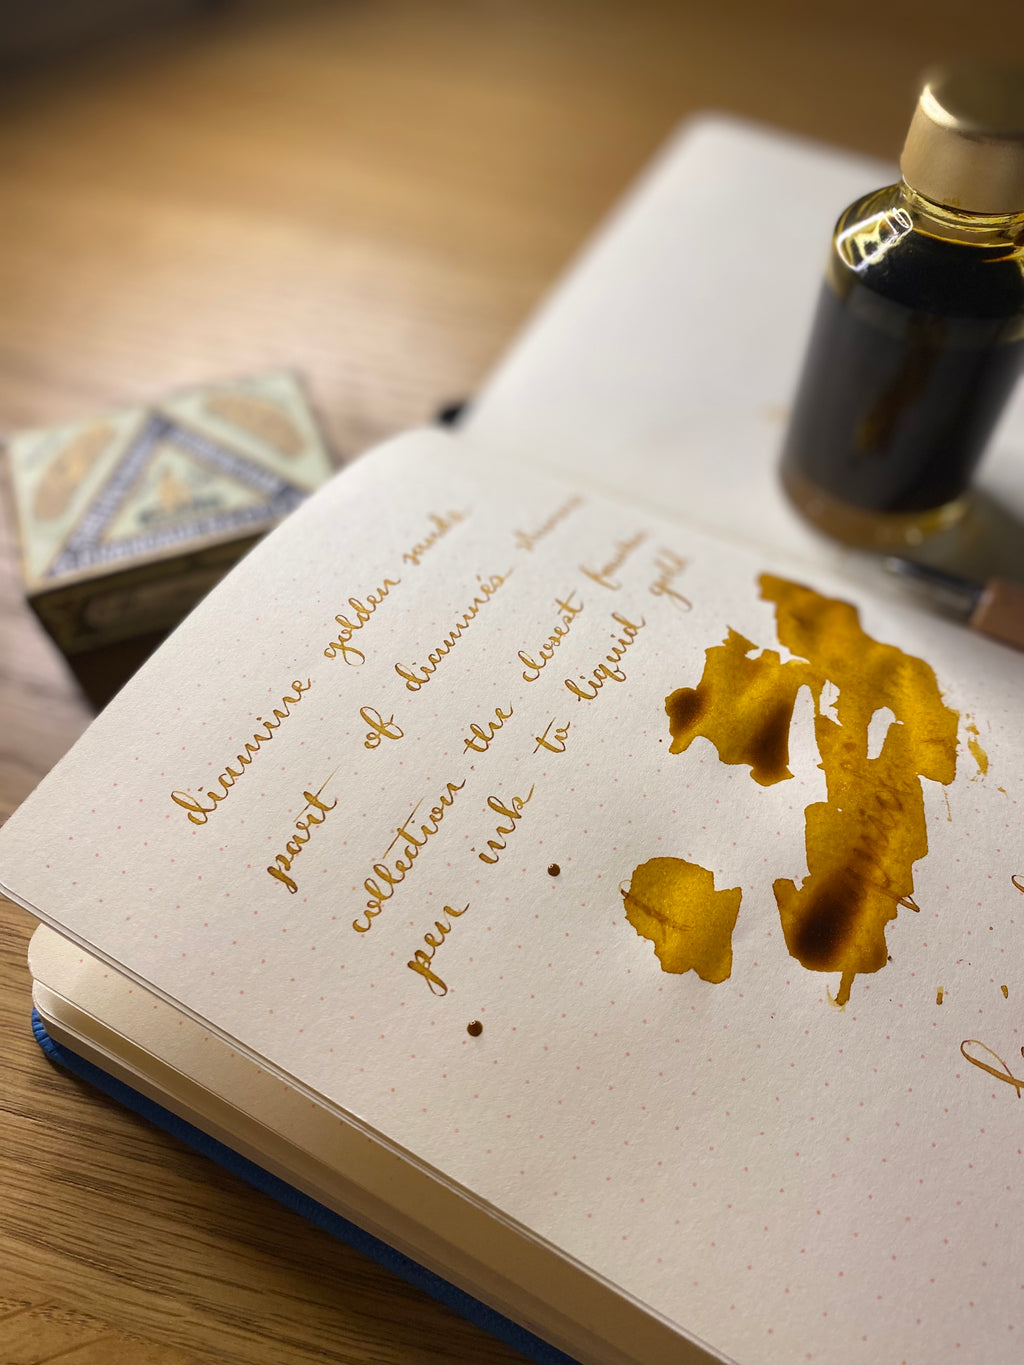 diamine golden sands
part of diamine's shimmer
collection. the closest fountain
pen ink to liquid gold